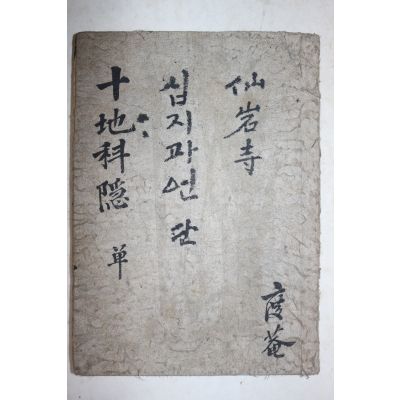 仙岩寺
십지과언 단
十地科隠 単
度菴